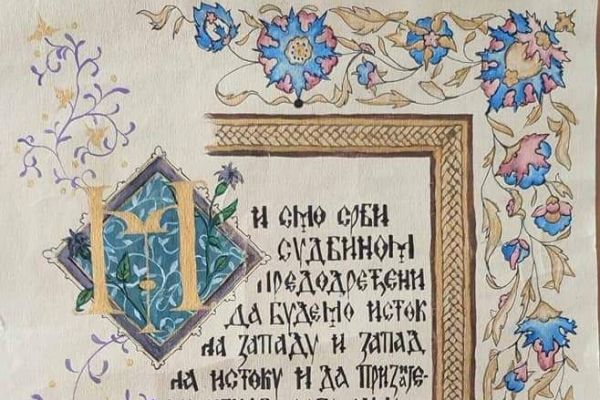 МИ СМО СРБИ
СУДБИНОМ
ПРЕДОДРЕЂЕНИ
ДА БУДЕМО ИСТОК
НА ЗАПАДУ И ЗАПАД
НА ИСТОКУ И ДА